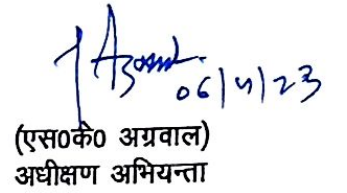 06/4/23
(एस0के0 अग्रवाल)
अधीक्षण अभियन्ता